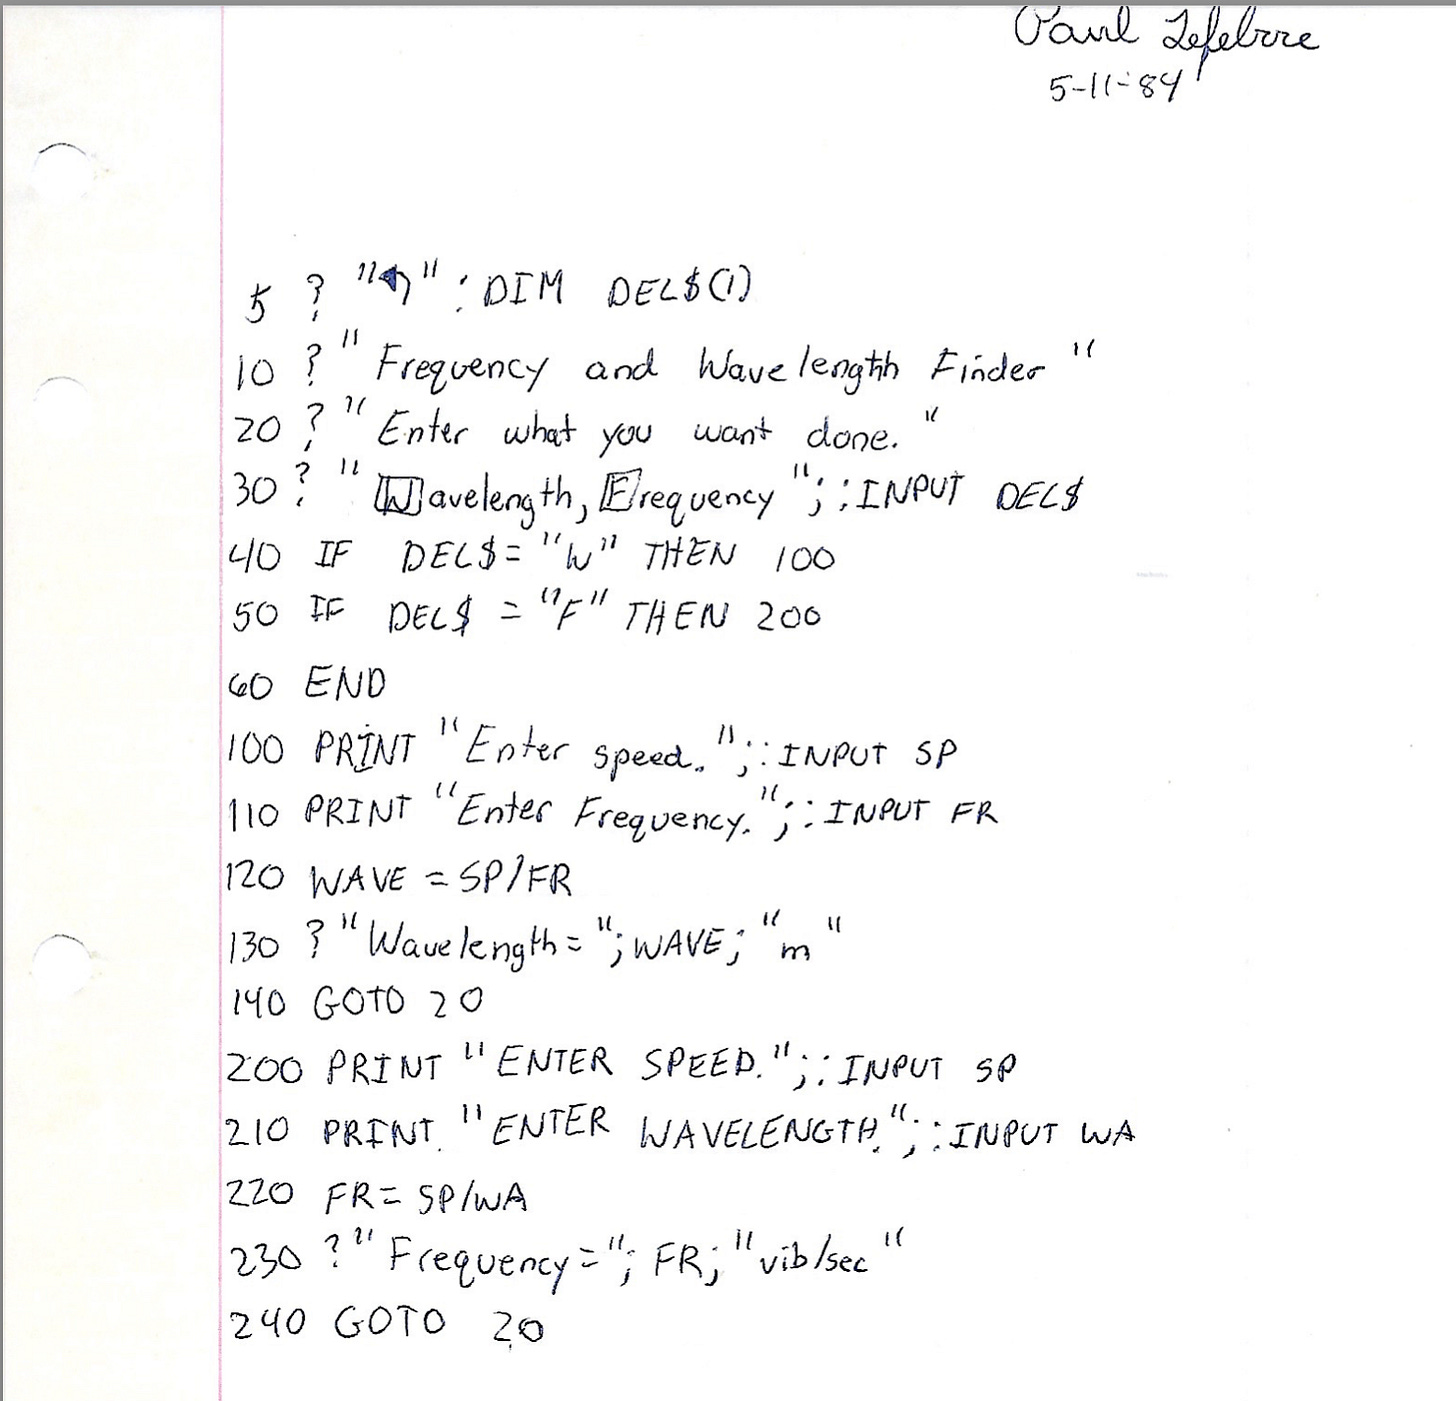 Paul Lefebvre
5-11-84
5 ? "↰" : DIM DEL$(1)
10 ? "Frequency and Wavelength Finder"
20 ? "Enter what you want done."
30 ? "Wavelength, Frequency";:INPUT DEL$
40 IF DEL$="W" THEN 100
50 IF DEL$ = "F" THEN 200
60 END
100 PRINT "Enter speed.";:INPUT SP
110 PRINT "Enter Frequency.";:INPUT FR
120 WAVE = SP/FR
130 ? "Wavelength=";WAVE; "m"
140 GOTO 20
200 PRINT "ENTER SPEED.";:INPUT SP
210 PRINT "ENTER WAVELENGTH.";:INPUT WA
220 FR= SP/WA
230 ?"Frequency="; FR; "vib/sec"
240 GOTO 20